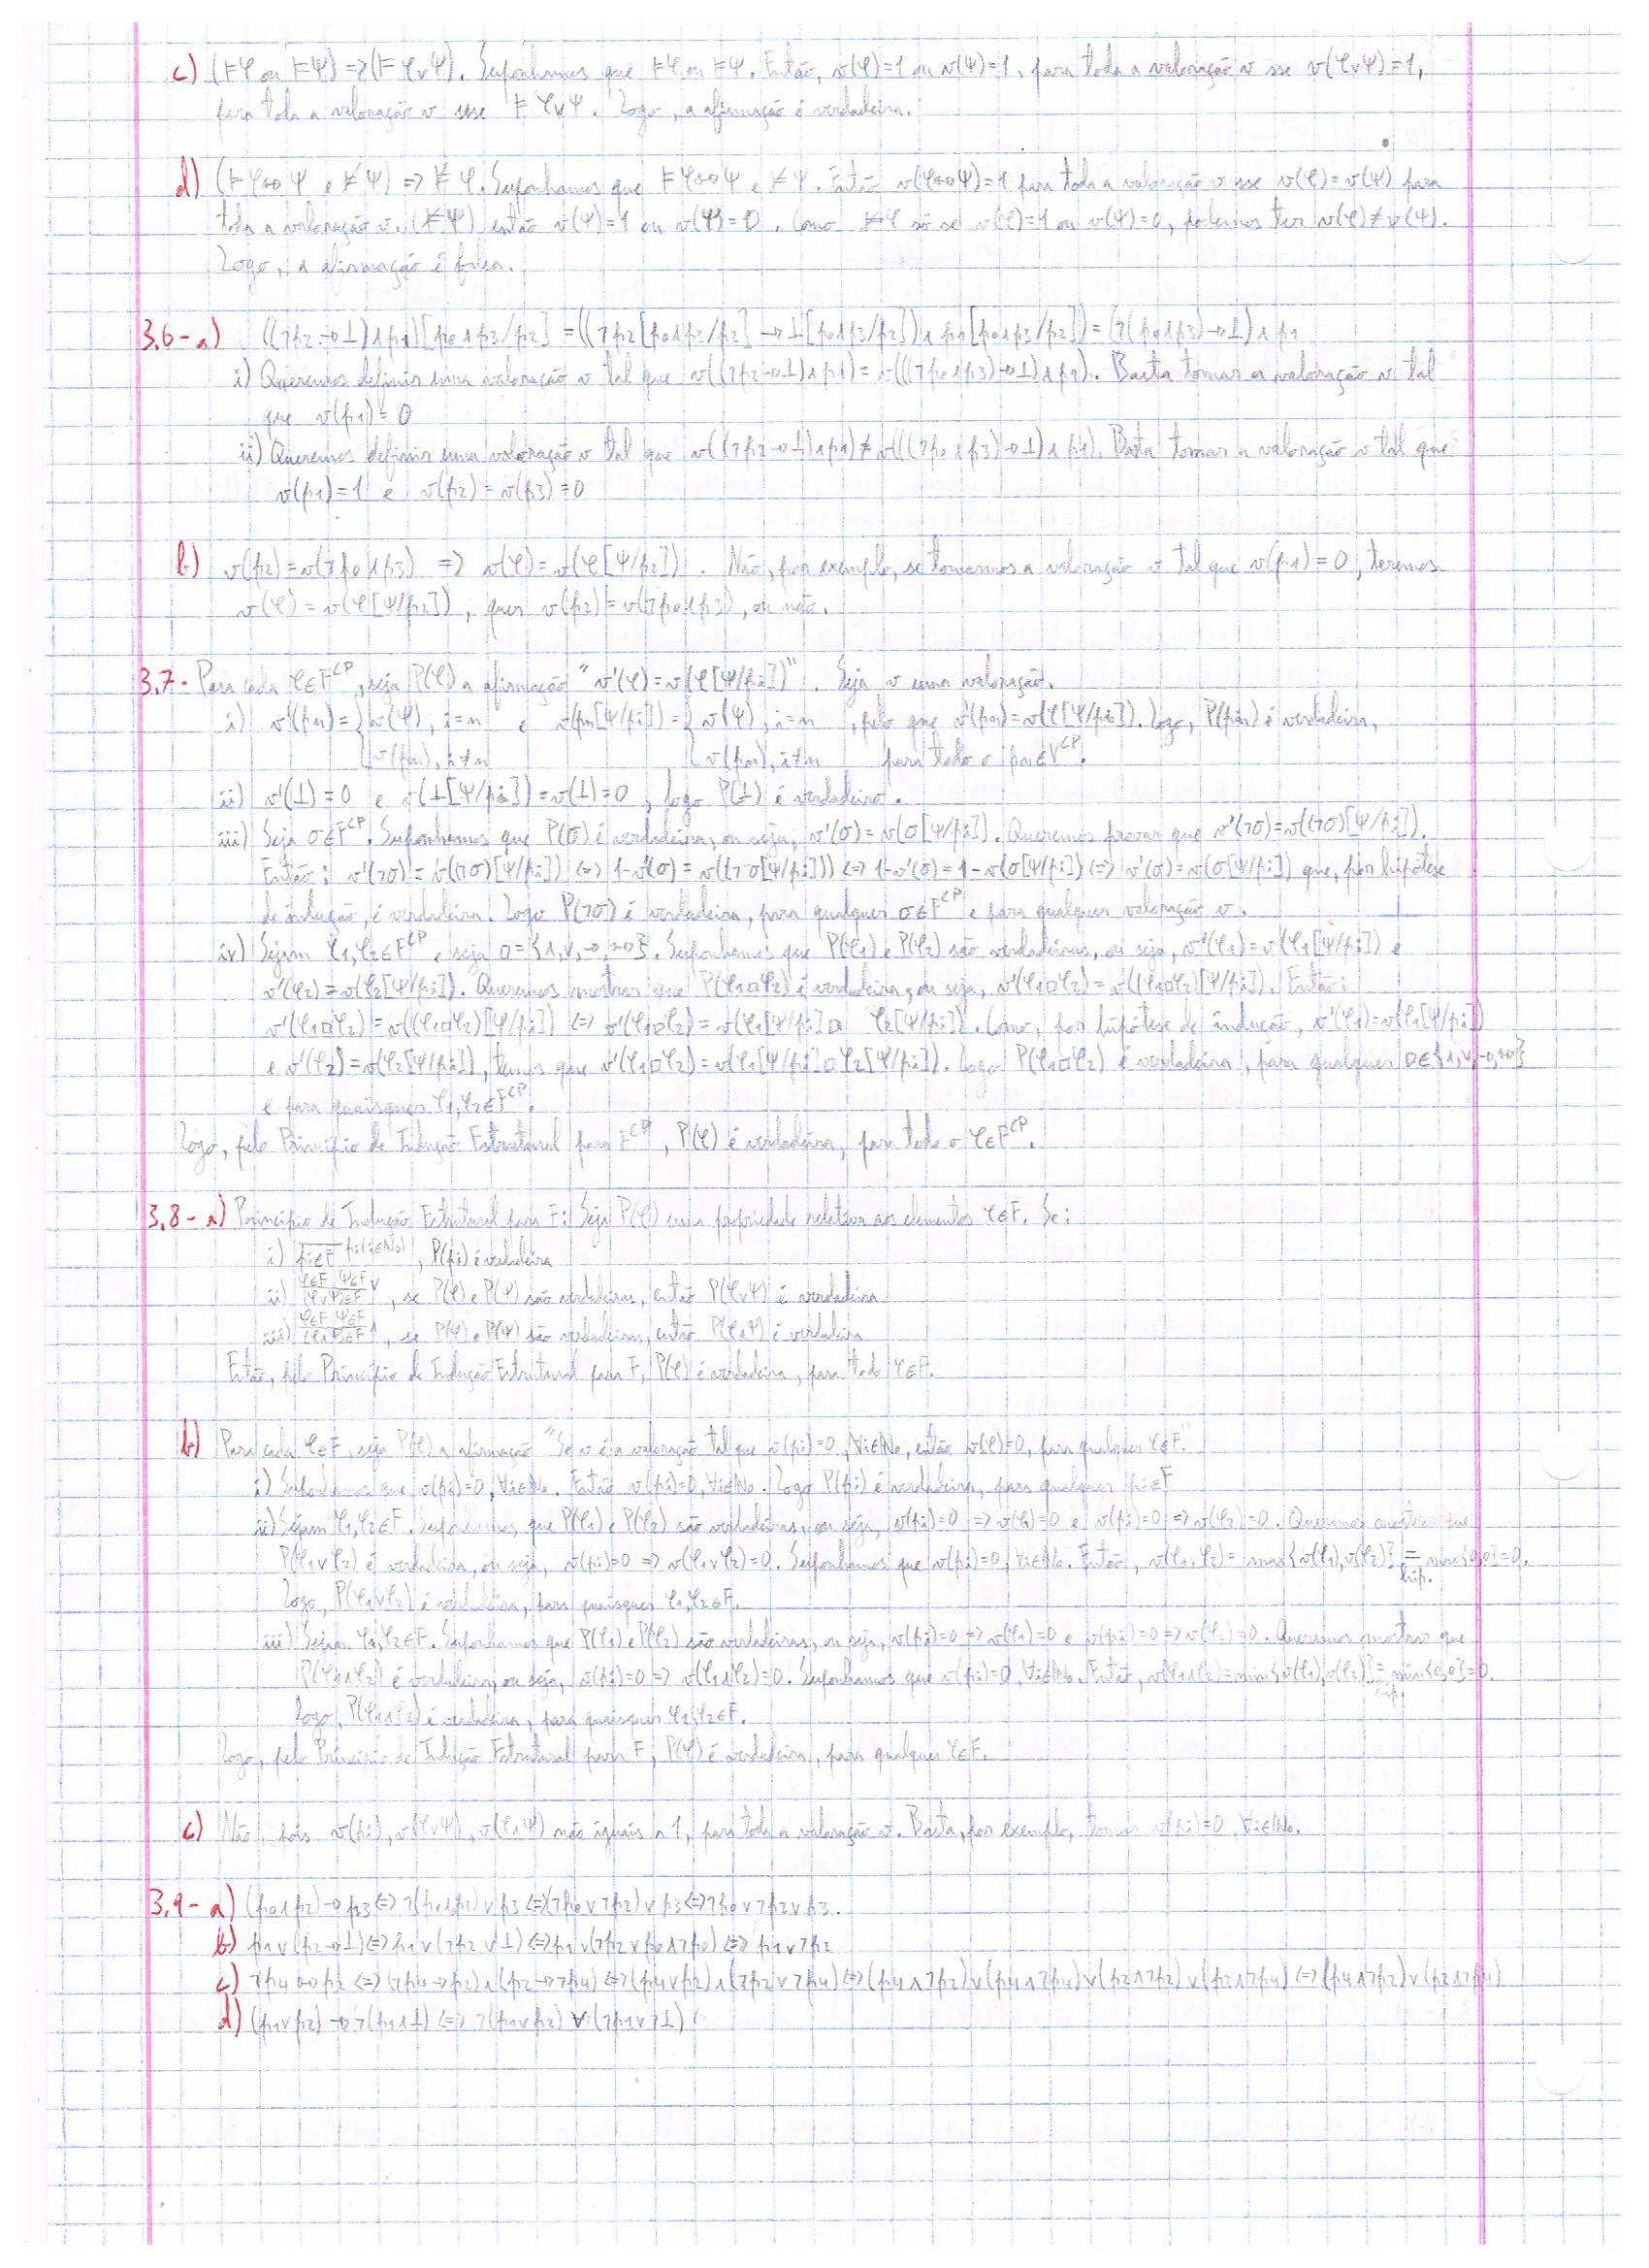 c) (⊨φ ou ⊨ψ) => (⊨ φ∨ψ). Suponhamos que ⊨φ ou ⊨ψ. Então, v(φ)=1 ou v(ψ)=1, para toda a valoração v sse v(φ∨ψ)=1,
para toda a valoração v sse ⊨ φ∨ψ. Logo, a afirmação é verdadeira.
d) (⊨φ↔ψ e ⊭ψ) => ⊭φ. Suponhamos que ⊨φ↔ψ e ⊭ψ. Então v(φ↔ψ)=1 para toda a valoração v sse v(φ)=v(ψ) para
toda a valoração v. (⊭ψ) então v(ψ)=1 ou v(ψ)=0. Como ⊭φ só se v(φ)=1 ou v(φ)=0, podemos ter v(φ)≠v(ψ).
Logo, a afirmação é falsa.
3.6- a) ((¬p2→⊥)∧p1)[p0∧p3/p2] = ((¬p2[p0∧p3/p2] → ⊥[p0∧p3/p2])∧ p1[p0∧p3/p2]) = (¬(p0∧p3)→⊥)∧p1
i) Queremos definir uma valoração v tal que v((¬p2→⊥)∧p1) = v(((¬p0∧p3)→⊥)∧p1). Basta tomar a valoração v tal
que v(p1)=0
ii) Queremos definir uma valoração v tal que v((¬p2→⊥)∧p1) ≠ v(((¬p0∧p3)→⊥)∧p1). Basta tomar a valoração v tal que
v(p1)=1 e v(p2)=v(p3)=0
b) v(p2)=v(¬p0∧p3) => v(φ)=v(φ[ψ/p2]). Não, por exemplo, se tomarmos a valoração v tal que v(p1)=0, teremos
v(φ)=v(φ[ψ/p2]), quer v(p2)=v(¬p0∧p3), ou não.
3.7- Para cada φ∈F^CP, seja P(φ) a afirmação "v'(φ)=v(φ[ψ/pi])". Seja v uma valoração.
i) v'(pn)={v(ψ), i=n e v(pn[ψ/pi])={v(ψ), i=n, pelo que v'(pn)=v(φ[ψ/pi]). Logo, P(pn) é verdadeira,
v(pn), i≠n v(pn), i≠n para todo o pn∈V^CP.
ii) v'(⊥)=0 e v(⊥[ψ/pi])=v(⊥)=0, logo P(⊥) é verdadeiro.
iii) Seja σ∈F^CP. Suponhamos que P(σ) é verdadeira, ou seja, v'(σ)=v(σ[ψ/pi]). Queremos provar que v'(¬σ)=v((¬σ)[ψ/pi]).
Então: v'(¬σ)=v((¬σ)[ψ/pi]) <=> 1-v'(σ)=v((¬σ[ψ/pi])) <=> 1-v'(σ)=1-v(σ[ψ/pi]) <=> v'(σ)=v(σ[ψ/pi]) que, por hipótese
de indução, é verdadeira. Logo P(¬σ) é verdadeira, para qualquer σ∈F^CP e para qualquer valoração v.
iv) Sejam φ1,φ2∈F^CP, seja □={∧,∨,→,↔}. Suponhamos que P(φ1) e P(φ2) são verdadeiras, ou seja, v'(φ1)=v(φ1[ψ/pi]) e
v'(φ2)=v(φ2[ψ/pi]). Queremos mostrar que P(φ1□φ2) é verdadeira, ou seja, v'(φ1□φ2)=v((φ1□φ2)[ψ/pi]). Então:
v'(φ1□φ2)=v((φ1□φ2)[ψ/pi]) <=> v'(φ1□φ2)=v(φ1[ψ/pi]□ φ2[ψ/pi]). Como, por hipótese de indução, v'(φ1)=v(φ1[ψ/pi])
e v'(φ2)=v(φ2[ψ/pi]), temos que v'(φ1□φ2)=v(φ1[ψ/pi]□φ2[ψ/pi]). Logo P(φ1□φ2) é verdadeira, para qualquer □∈{∧,∨,→,↔}
e para quaisquer φ1,φ2∈F^CP.
Logo, pelo Princípio de Indução Estrutural para F^CP, P(φ) é verdadeira, para todo o φ∈F^CP.
3.8- a) Princípio de Indução Estrutural para F: Seja P(φ) uma propriedade relativa aos elementos φ∈F. Se:
i) pi∈F pi(i∈N0), P(pi) é verdadeira
ii) φ∈F ψ∈F / (φ∨ψ)∈F ∨, se P(φ) e P(ψ) são verdadeiras, então P(φ∨ψ) é verdadeira
iii) φ∈F ψ∈F / (φ∧ψ)∈F ∧, se P(φ) e P(ψ) são verdadeiras, então P(φ∧ψ) é verdadeira
Então, pelo Princípio de Indução Estrutural para F, P(φ) é verdadeira, para todo φ∈F.
b) Para cada φ∈F, seja P(φ) a afirmação "Se v é a valoração tal que v(pi)=0, ∀i∈N0, então v(φ)=0, para qualquer φ∈F."
i) Suponhamos que v(pi)=0, ∀i∈N0. Então v(pi)=0, ∀i∈N0. Logo P(pi) é verdadeira, para qualquer pi∈F
ii) Sejam φ1,φ2∈F. Suponhamos que P(φ1) e P(φ2) são verdadeiras, ou seja, v(pi)=0 => v(φ1)=0 e v(pi)=0 => v(φ2)=0. Queremos mostrar que
P(φ1∨φ2) é verdadeira, ou seja, v(pi)=0 => v(φ1∨φ2)=0. Suponhamos que v(pi)=0, ∀i∈N0. Então, v(φ1∨φ2)=max{v(φ1),v(φ2)} = max{0,0}=0.
hip.
Logo, P(φ1∨φ2) é verdadeira, para quaisquer φ1,φ2∈F.
iii) Sejam φ1,φ2∈F. Suponhamos que P(φ1) e P(φ2) são verdadeiras, ou seja, v(pi)=0 => v(φ1)=0 e v(pi)=0 => v(φ2)=0. Queremos mostrar que
P(φ1∧φ2) é verdadeira, ou seja, v(pi)=0 => v(φ1∧φ2)=0. Suponhamos que v(pi)=0, ∀i∈N0. Então, v(φ1∧φ2)=min{v(φ1),v(φ2)} = min{0,0}=0.
hip.
Logo, P(φ1∧φ2) é verdadeira, para quaisquer φ1,φ2∈F.
Logo, pelo Princípio de Indução Estrutural para F, P(φ) é verdadeira, para qualquer φ∈F.
c) Não, pois v(pi), v(φ∨ψ), v(φ∧ψ) não iguais a 1, para toda a valoração v. Basta, por exemplo, tomar v(pi)=0, ∀i∈N0.
3.9- a) (p0∧p2)→p3 <=> ¬(p0∧p2)∨p3 <=> (¬p0∨¬p2)∨p3 <=> ¬p0∨¬p2∨p3.
b) p1∨(p2→⊥) <=> p1∨(¬p2∨⊥) <=> p1∨(¬p2∨p0∧¬p0) <=> p1∨¬p2
c) ¬p4↔p2 <=> (¬p4→p2)∧(p2→¬p4) <=> (p4∨p2)∧(¬p2∨¬p4) <=> (p4∧¬p2)∨(p4∧¬p4)∨(p2∧¬p2)∨(p2∧¬p4) <=> (p4∧¬p2)∨(p2∧¬p4)
d) (p1∨p2)→¬(p1∧⊥) <=> ¬(p1∨p2)∨(¬p1∨¬⊥)